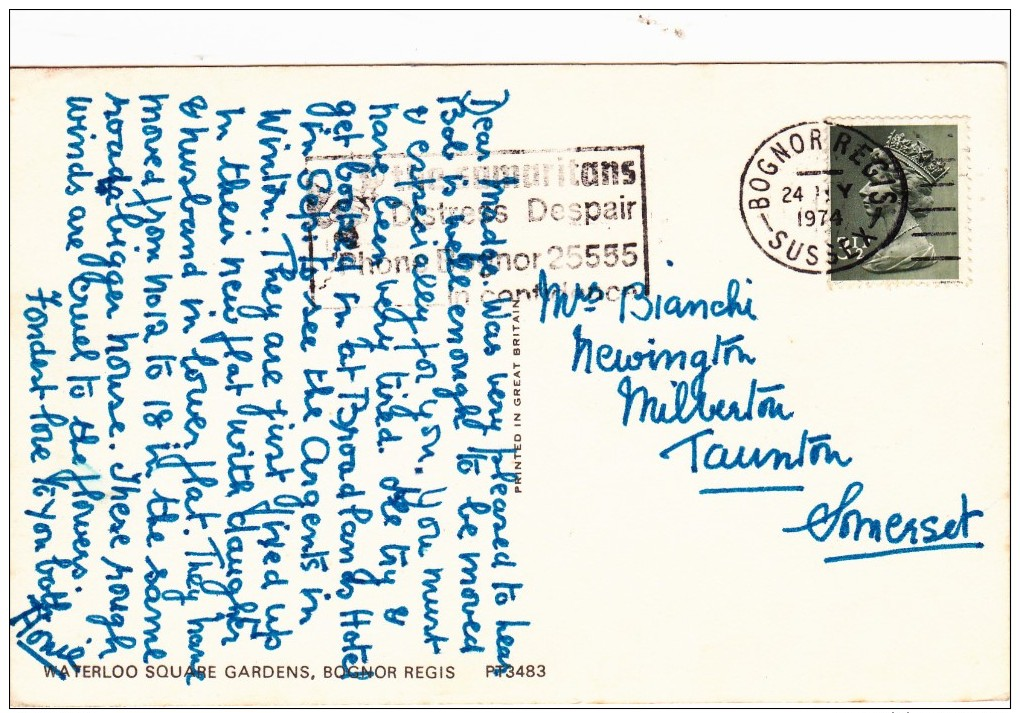 Dear Madge. Was very pleased to hear
Bob is well enough to be moved
& especially for you. You must
have been very tired. We try &
get booked in at Broadlands Hotel
in Sept to see the Argents in
Winton. They are just fixed up
in their new flat with daughter
& husband in lower flat. They have
moved from no 12 to 18 in the same
road bigger house. These rough
winds are cruel to the flowers.
Fondest love to you both
the samaritans
Distress Despair
Phone Bognor 25555
in confidence
BOGNOR REGIS
24
1974
SUSSEX
Mrs Bianchi
Newington
Milberton
Taunton
Somerset
PRINTED IN GREAT BRITAIN
WATERLOO SQUARE GARDENS, BOGNOR REGIS PT3483